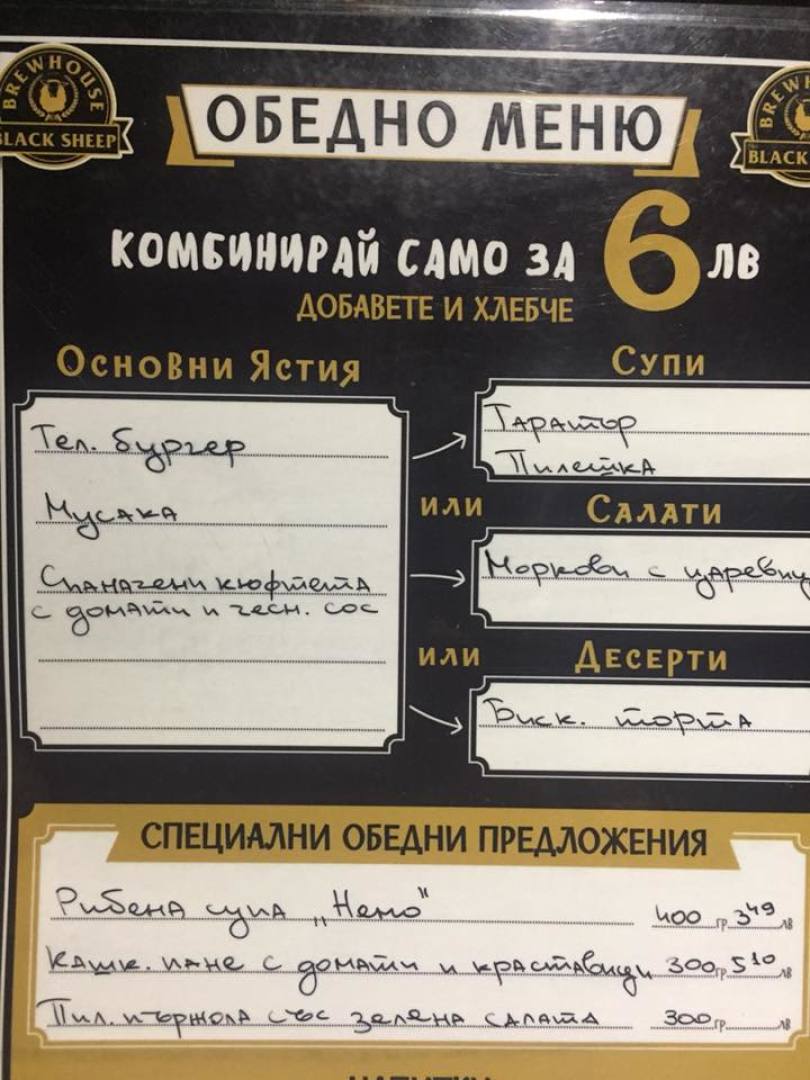 BREWHOUSE
BLACK SHEEP
BREWH
BLACK
ОБЕДНО МЕНЮ
КОМБИНИРАЙ САМО ЗА 6 ЛВ
ДОБАВЕТЕ И ХЛЕБЧЕ
Основни Ястия
Тел. бургер
Мусака
Спаначени кюфтета
с домати и чесн. сос
Супи
Таратор
Пилешка
или
Салати
Моркови с царевиц
или
Десерти
Биск. торта
СПЕЦИАЛНИ ОБЕДНИ ПРЕДЛОЖЕНИЯ
Рибена супа „Немо" 400 гр. 3 49 лв
Кашк. пане с домати и краставици 300 гр. 5 10 лв
Пил. пържола със зелена салата 300 гр. лв